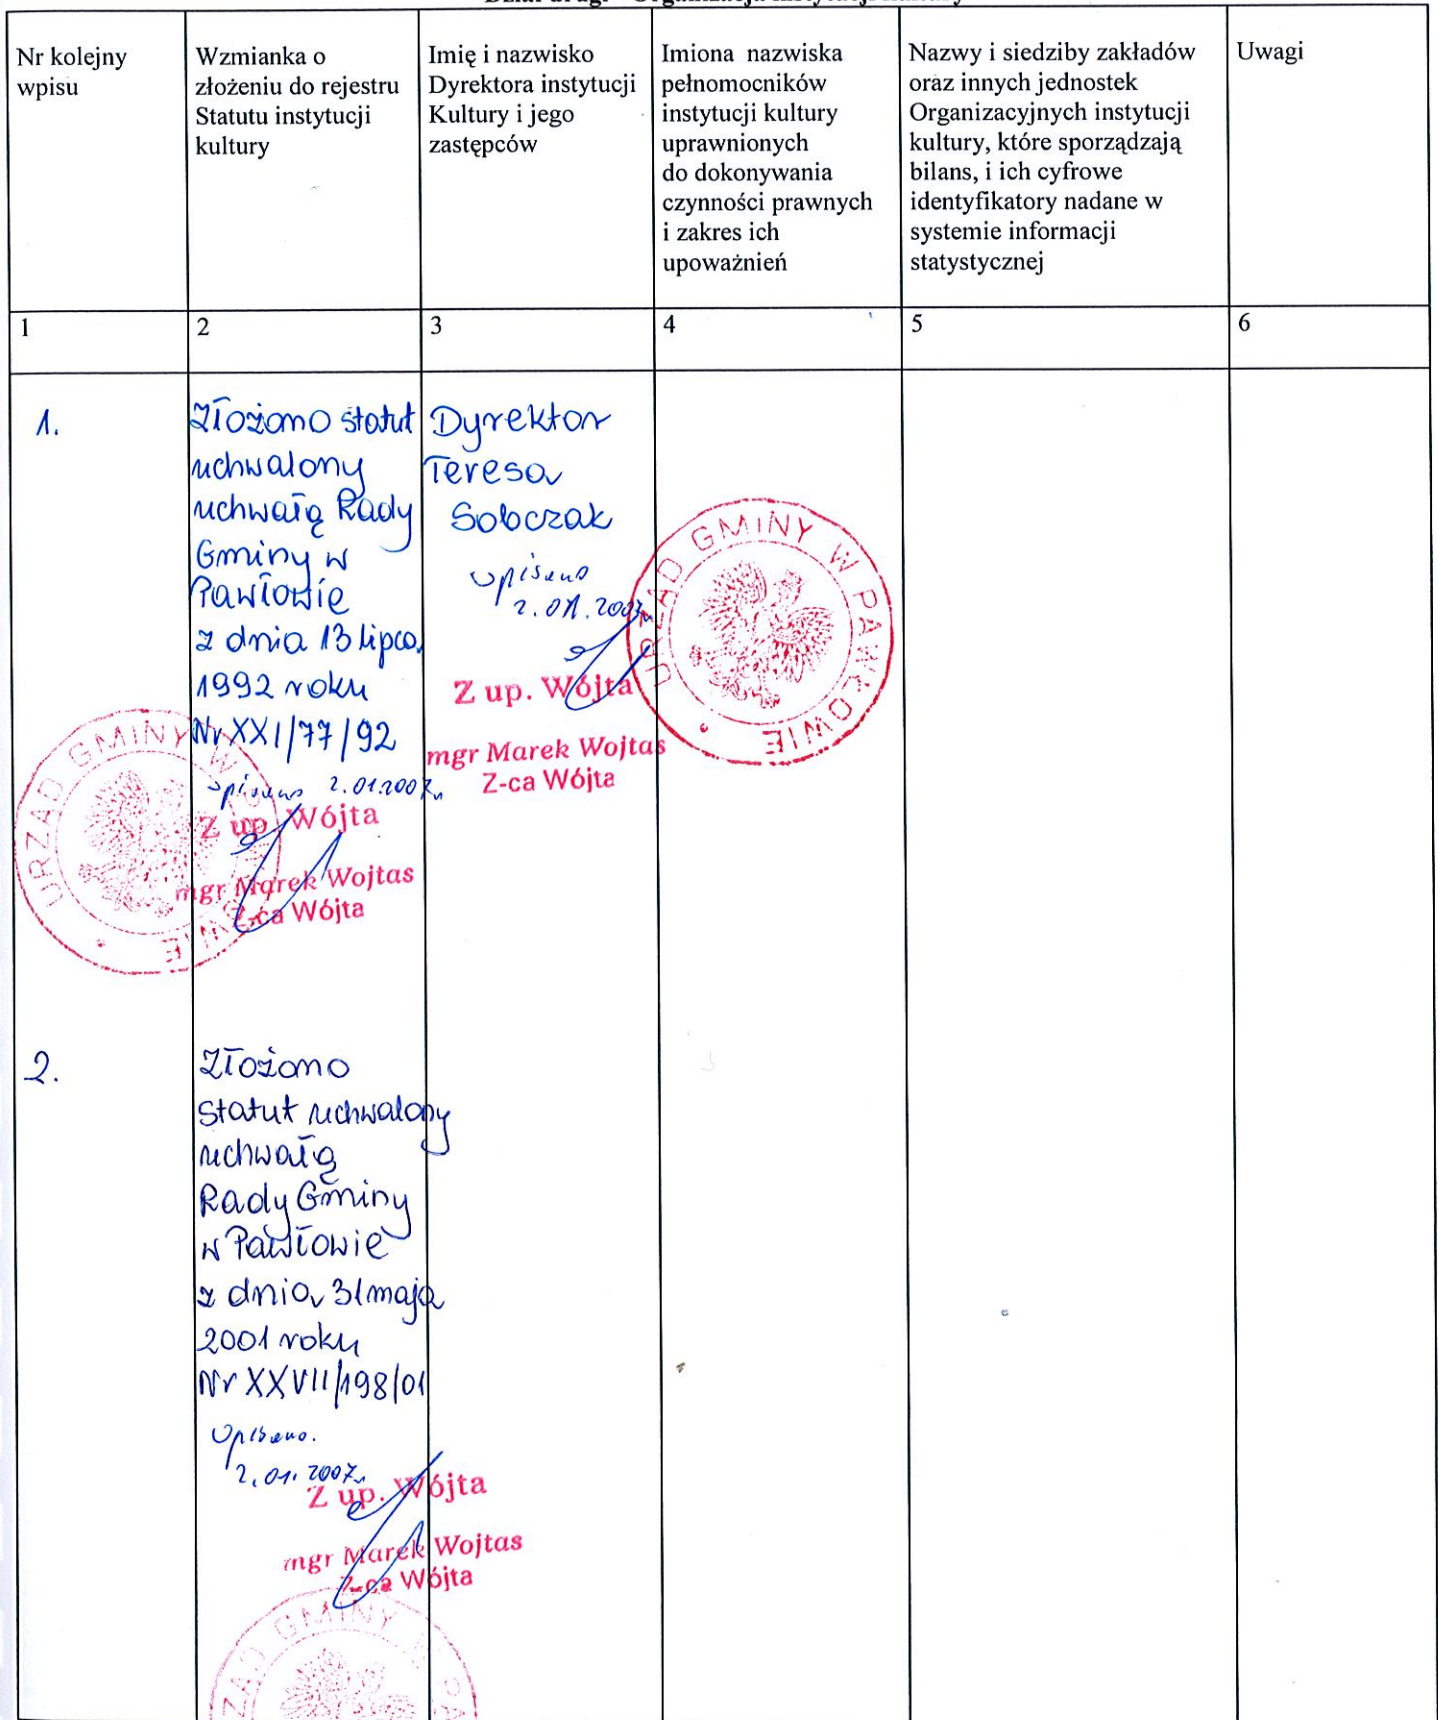 Dział drugi - Organizacja instytucji kultury
Nr kolejny
wpisu
Wzmianka o
złożeniu do rejestru
Statutu instytucji
kultury
Imię i nazwisko
Dyrektora instytucji
Kultury i jego
zastępców
Imiona nazwiska
pełnomocników
instytucji kultury
uprawnionych
do dokonywania
czynności prawnych
i zakres ich
upoważnień
Nazwy i siedziby zakładów
oraz innych jednostek
Organizacyjnych instytucji
kultury, które sporządzają
bilans, i ich cyfrowe
identyfikatory nadane w
systemie informacji
statystycznej
Uwagi
1
2
3
4
5
6
1.
Złożono statut
uchwalony
uchwałą Rady
Gminy w
Pawłowie
z dnia 13 lipca
1992 roku
Nr XXI/77/92
wpisano 2.01.2007r
Z up. Wójta
mgr Marek Wojtas
Z-ca Wójta
URZĄD GMINY W PAWŁOWIE
Dyrektor
Teresa
Sobczak
wpisano
2.01.2007r
Z up. Wójta
mgr Marek Wojtas
Z-ca Wójta
URZĄD GMINY W PAWŁOWIE
2.
Złożono
statut uchwalony
uchwałą
Rady Gminy
w Pawłowie
z dnia 31 maja
2001 roku
Nr XXVII/198/01
Wpisano.
2.01.2007r
Z up. Wójta
mgr Marek Wojtas
Z-ca Wójta
ZĄD GMINY W PA